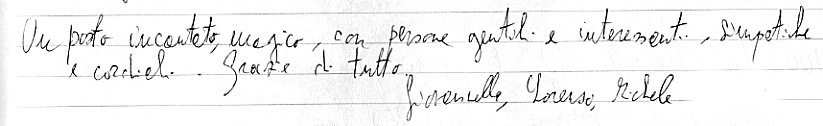 Un posto incantato, magico, con persone gentili e interessanti, simpatiche
e cordiali. Grazie di tutto.
Giovanella, Lorenzo, Michele